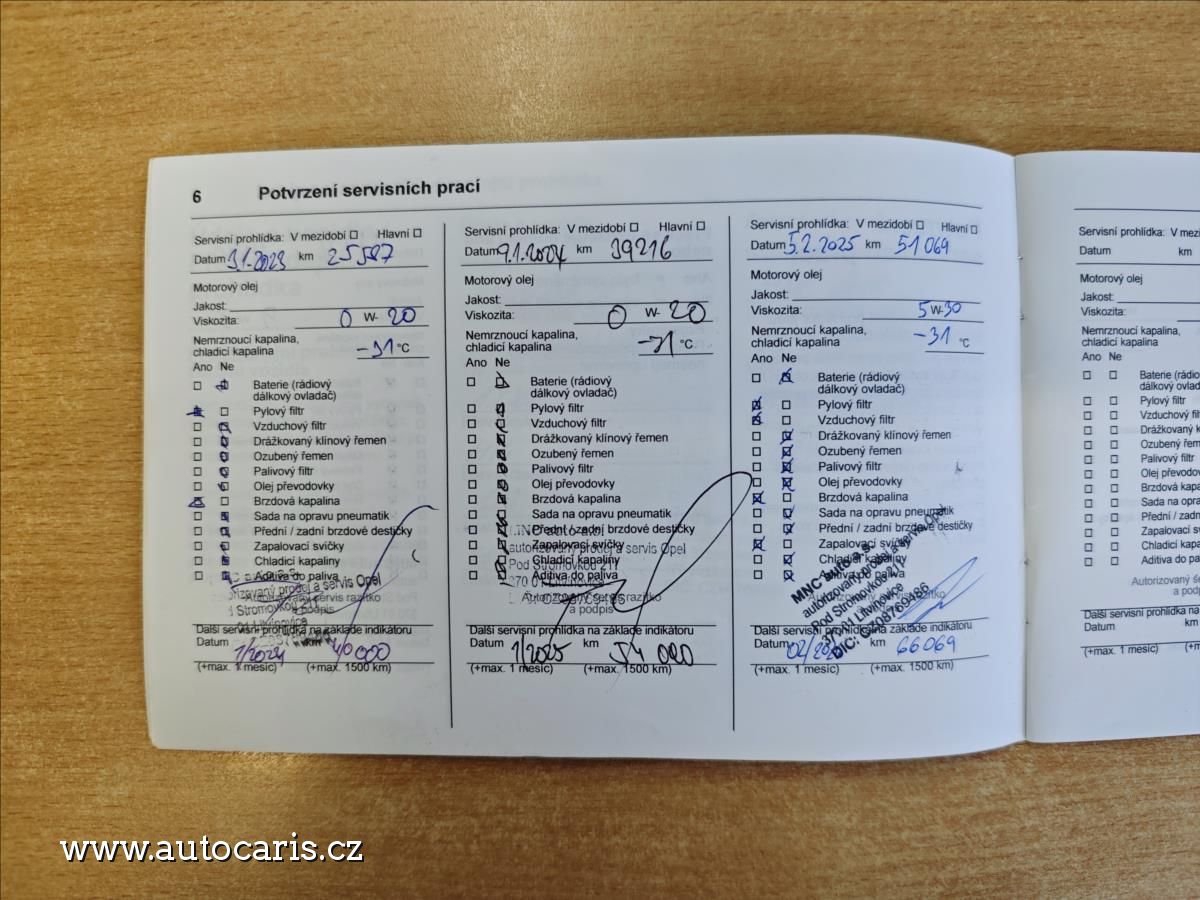 6 Potvrzení servisních prací
Servisní prohlídka: V mezidobí Hlavní
Datum 3.1.2023 km 25587
Motorový olej
Jakost:
Viskozita: 0 W- 20
Nemrznoucí kapalina,
chladicí kapalina -31 °C
Ano Ne
Baterie (rádiový
dálkový ovladač)
Pylový filtr
Vzduchový filtr
Drážkovaný klínový řemen
Ozubený řemen
Palivový filtr
Olej převodovky
Brzdová kapalina
Sada na opravu pneumatik
Přední / zadní brzdové destičky
Zapalovací svíčky
Chladicí kapaliny
Aditiva do paliva
prodej a servis Opel
Autorizovaný servis razítko
Stromovkou
a podpis
Litvínovice
Další servisní prohlídka na základě indikátoru
Datum 1/2024 km 40 000
(+max. 1 měsíc) (+max. 1500 km)
Servisní prohlídka: V mezidobí Hlavní
Datum 9.1.2024 km 39216
Motorový olej
Jakost:
Viskozita: 0 W- 20
Nemrznoucí kapalina,
chladicí kapalina -31 °C
Ano Ne
Baterie (rádiový
dálkový ovladač)
Pylový filtr
Vzduchový filtr
Drážkovaný klínový řemen
Ozubený řemen
Palivový filtr
Olej převodovky
Brzdová kapalina
Sada na opravu pneumatik
Přední / zadní brzdové destičky
Zapalovací svíčky
autorizovaný prodej a servis Opel
Chladicí kapaliny
Pod Stromovkou 211
Aditiva do paliva
370 01 Litvínovice
Autorizovaný servis razítko
a podpis
Další servisní prohlídka na základě indikátoru
Datum 1/2025 km 54 000
(+max. 1 měsíc) (+max. 1500 km)
Servisní prohlídka: V mezidobí Hlavní
Datum 5.2.2025 km 51 069
Motorový olej
Jakost:
Viskozita: 5 W-30
Nemrznoucí kapalina,
chladicí kapalina -31 °C
Ano Ne
Baterie (rádiový
dálkový ovladač)
Pylový filtr
Vzduchový filtr
Drážkovaný klínový řemen
Ozubený řemen
Palivový filtr
Olej převodovky
Brzdová kapalina
Sada na opravu pneumatik
Přední / zadní brzdové destičky
Zapalovací svíčky
Chladicí kapaliny
Aditiva do paliva
MNC auto a.s.
autorizovaný prodej a servis Opel
Pod Stromovkou
370 01 Litvínovice
DIČ: CZ08769486
Další servisní prohlídka na základě indikátoru
Datum km 66 069
(+max. 1 měsíc) (+max. 1500 km)
Servisní prohlídka: V
Datum km
Motorový olej
Jakost:
Viskozita:
Nemrznoucí kapalina,
chladicí kapalina
Ano Ne
Baterie
dálkový
Pylový filtr
Vzduchový
Drážkovaná
Ozubený
Palivový
Olej
Brzdová
Sada na
Přední /
Zapalovací
Chladicí
Aditiva do
Autorizovaný
a podpis
Další servisní prohlídka na
Datum km
(+max. 1 měsíc)
www.autocaris.cz